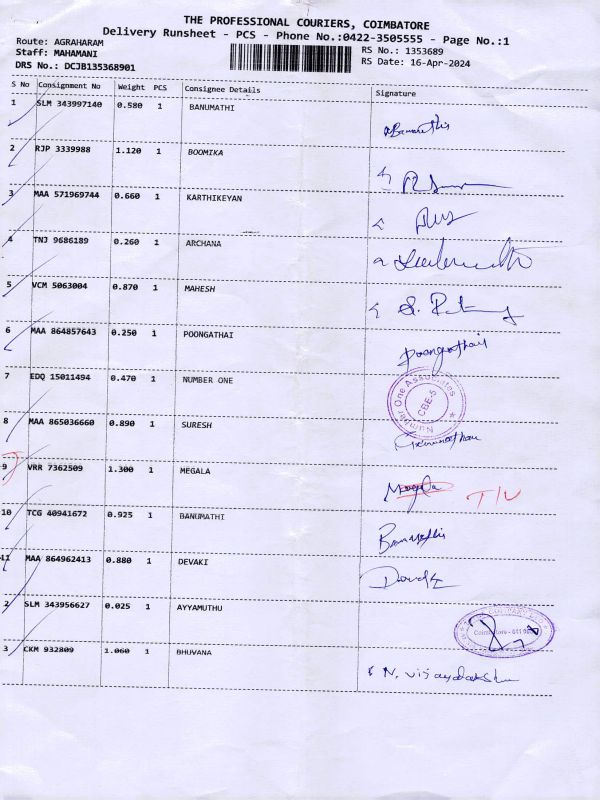 THE PROFESSIONAL COURIERS, COIMBATORE
Delivery Runsheet - PCS - Phone No.:0422-3505555 - Page No.:1
Route: AGRAHARAM
RS No.: 1353689
Staff: MAHAMANI
RS Date: 16-Apr-2024
DRS No.: DCJB135368901
S No Consignment No Weight PCS Consignee Details Signature
1 SLM 343997140 0.580 1 BANUMATHI Banumathi
2 RJP 3339988 1.120 1 BOOMIKA
3 MAA 571969744 0.660 1 KARTHIKEYAN
4 TNJ 9686189 0.260 1 ARCHANA
5 VCM 5063004 0.870 1 MAHESH
6 MAA 864857643 0.250 1 POONGATHAI Poongothai
7 EDQ 15011494 0.470 1 NUMBER ONE Number One Associates CBE-5
8 MAA 865036660 0.890 1 SURESH
9 VRR 7362509 1.300 1 MEGALA Megala T/V
10 TCG 40941672 0.925 1 BANUMATHI Banumathi
11 MAA 864962413 0.880 1 DEVAKI
2 SLM 343956627 0.025 1 AYYAMUTHU
3 CKM 932809 1.060 1 BHUVANA N. Vijayalakshmi